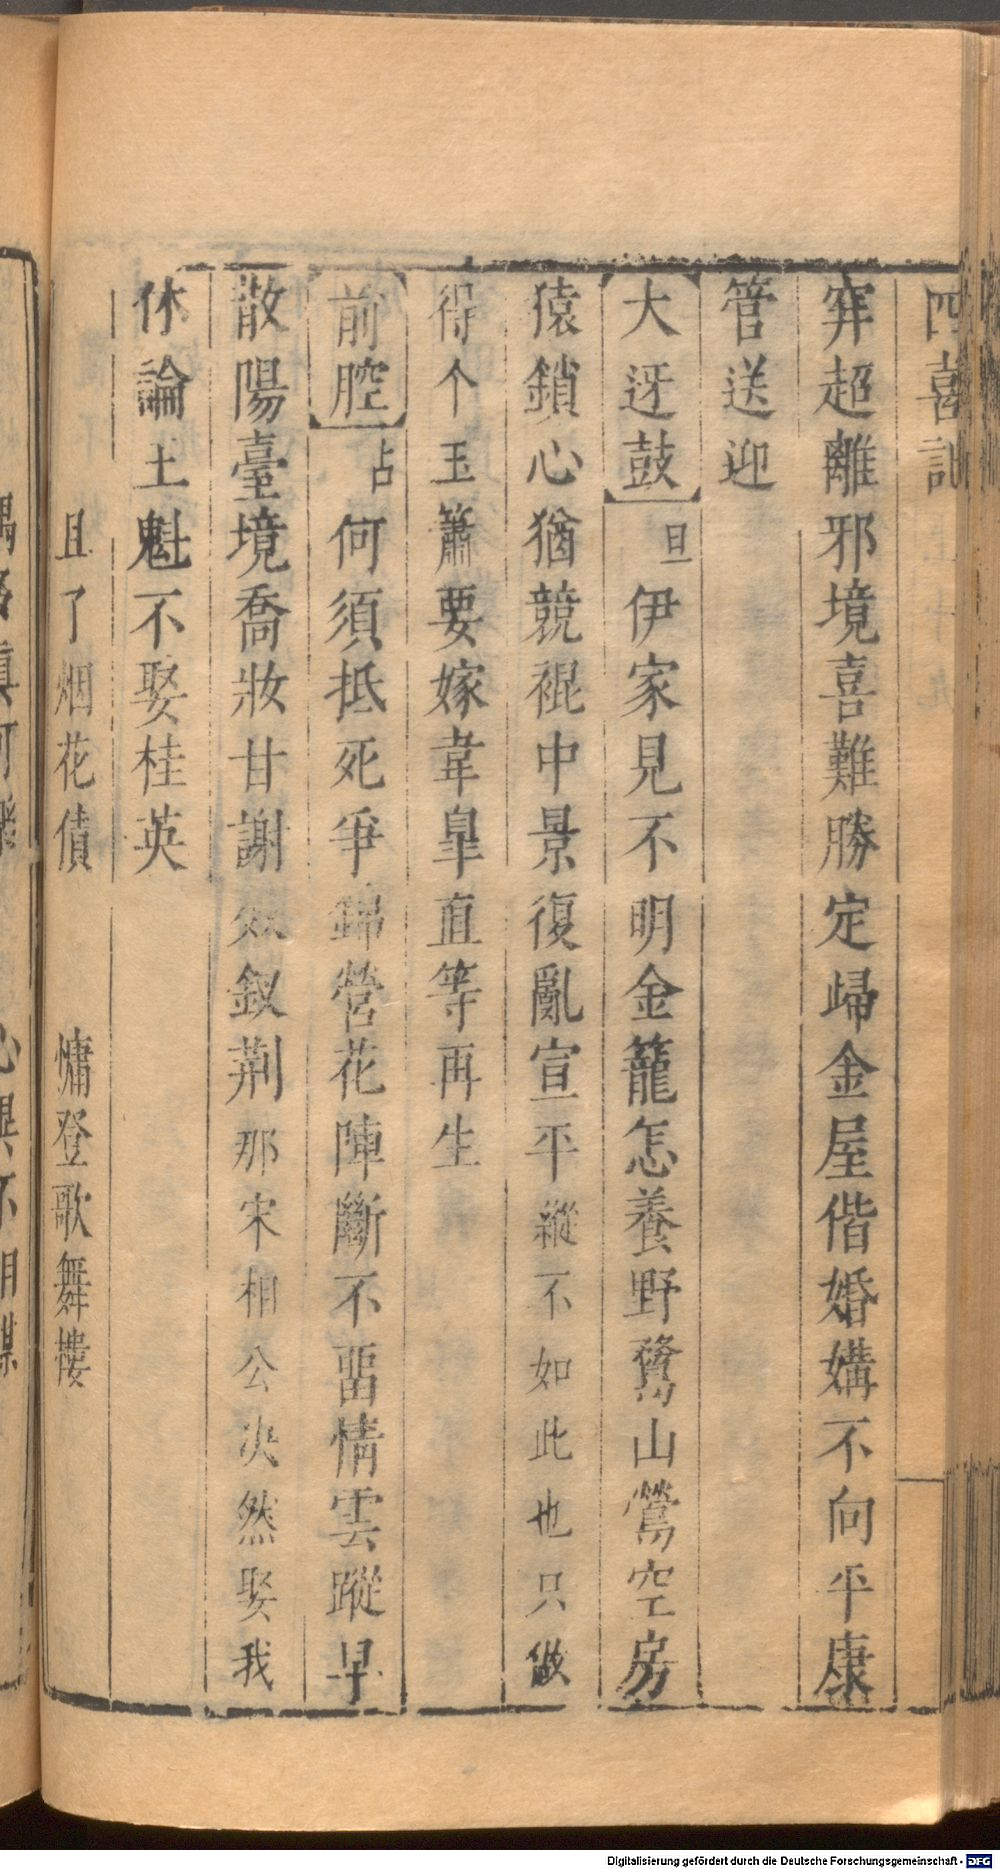 四喜記
穽超離邪境喜難勝定歸金屋偕婚媾不向平康
管送迎
大迓鼓 旦 伊家見不明金籠怎養野鶩山鶯空房
猿鎖心猶競裩中景復亂宣平縱不如此也只做
得个玉簫要嫁韋臯直等再生
前腔 占 何須抵死爭錦營花陣斷不畱情雲蹤早
散陽臺境喬妝甘謝釵荆那宋相公决然娶我
休論土魁不娶桂英
且了烟花債 慵登歌舞樓
Digitalisierung gefördert durch die Deutsche Forschungsgemeinschaft - DFG